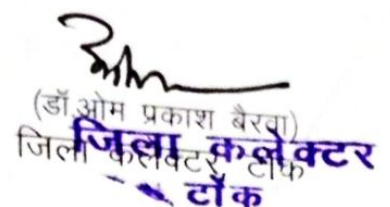 (डॉ.ओम प्रकाश बैरवा)
जिला कलेक्टर, टोंक
जिला कलेक्टर
टोंक